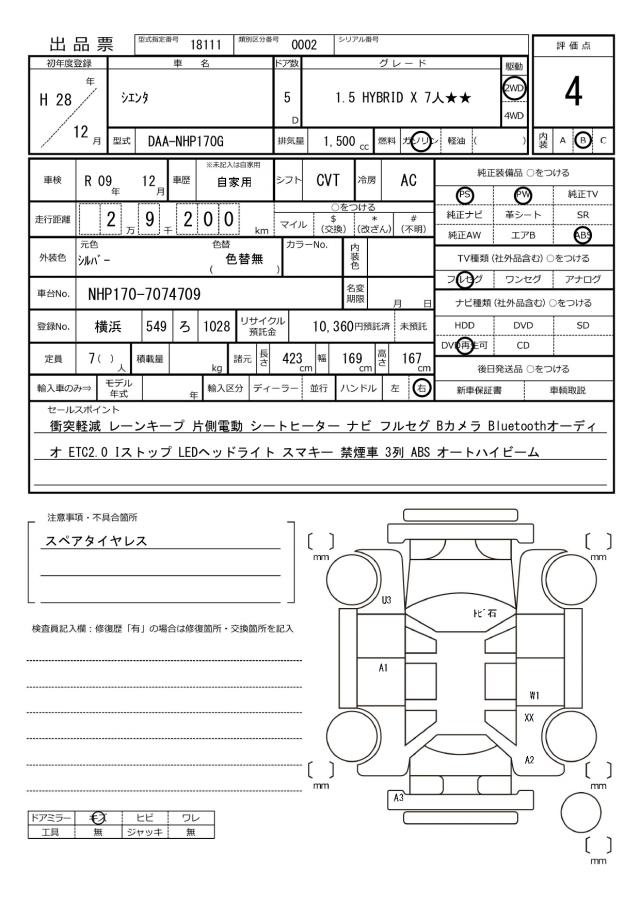 出品票 型式指定番号 18111 類別区分番号 0002 シリアル番号
評価点
4
内装 A B C
初年度登録 車名 ドア数 グレード 駆動
H 28 年 12 月
シエンタ
5 D
1.5 HYBRID X 7人★★
2WD
4WD
型式 DAA-NHP170G 排気量 1,500 cc 燃料 ガソリン 軽油 ( )
車検 R 09 年 12 月 車歴 ※未記入は自家用 自家用 シフト CVT 冷房 AC
走行距離 2 9 万 2 千 0 0 km
○をつける
マイル $ (交換) * (改ざん) # (不明)
外装色 元色 シルバー 色替 ( 色替無 ) カラーNo. 内装色
車台No. NHP170-7074709 名変期限 月 日
登録No. 横浜 549 ろ 1028 リサイクル預託金 10,360円預託済 未預託
定員 7 ( ) 人 積載量 kg 諸元 長さ 423 cm 幅 169 cm 高さ 167 cm
輸入車のみ⇒ モデル年式 年 輸入区分 ディーラー 並行 ハンドル 左 右
純正装備品 ○をつける
PS PW 純正TV
純正ナビ 革シート SR
純正AW エアB ABS
TV種類 (社外品含む) ○をつける
フルセグ ワンセグ アナログ
ナビ種類 (社外品含む) ○をつける
HDD DVD SD
DVD再生可 CD
後日発送品 ○をつける
新車保証書 車輌取説
セールスポイント
衝突軽減 レーンキープ 片側電動 シートヒーター ナビ フルセグ Bカメラ Bluetoothオーディ
オ ETC2.0 Iストップ LEDヘッドライト スマキー 禁煙車 3列 ABS オートハイビーム
注意事項・不具合箇所
スペアタイヤレス
検査員記入欄：修復歴「有」の場合は修復箇所・交換箇所を記入
ドアミラー キズ ヒビ ワレ
工具 無 ジャッキ 無
mm
mm
U3
トビ石
A1
W1
XX
A2
mm
mm
A3
mm